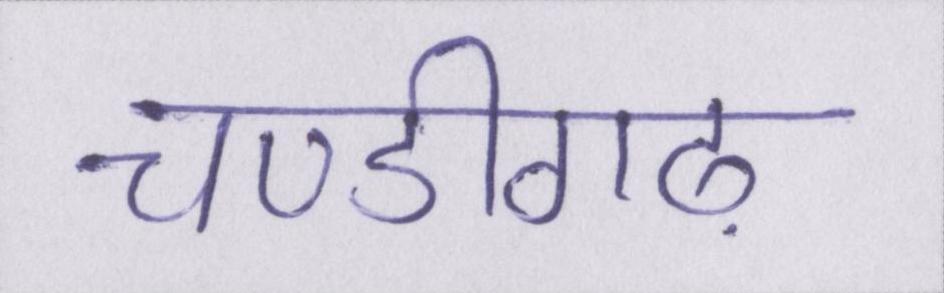 चण्डीगढ़